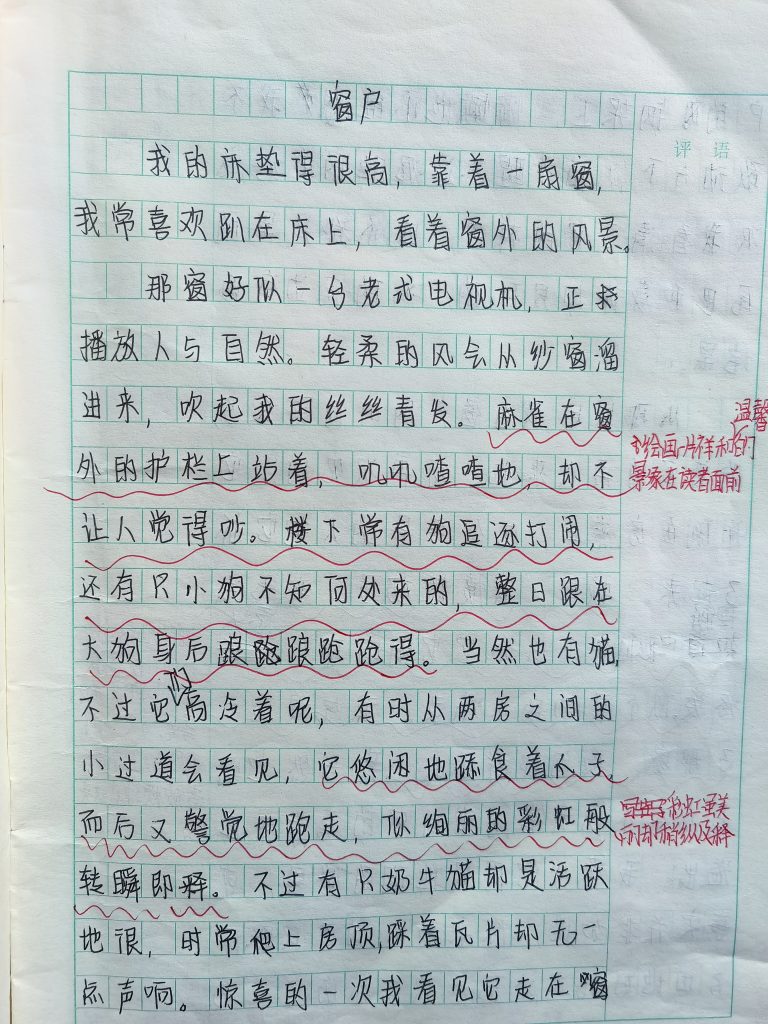 窗户
评语
我的床垫得很高，靠着一扇窗，
我常喜欢趴在床上，看着窗外的风景。
那窗好似一台老式电视机，正
播放人与自然。轻柔的风会从纱窗溜
进来，吹起我的丝丝青发。麻雀在窗
外的护栏上站着，叽叽喳喳地，却不
让人觉得吵。楼下常有狗追逐打闹，
还有只小狗不知何处来的，整日跟在
大狗身后踉跄踉跄跑得。当然也有猫，
不过它们高冷着呢，有时从两房之间的
小过道会看见，它悠闲地舔食着爪子，
而后又警觉地跑走，似绚丽的彩虹般
转瞬即释。不过有只奶牛猫却是活跃
地很，时常爬上房顶，踩着瓦片却无一
点声响。惊喜的一次我看见它走在窗
温馨
绘画一片祥和的
景象在读者面前
彩虹虽美